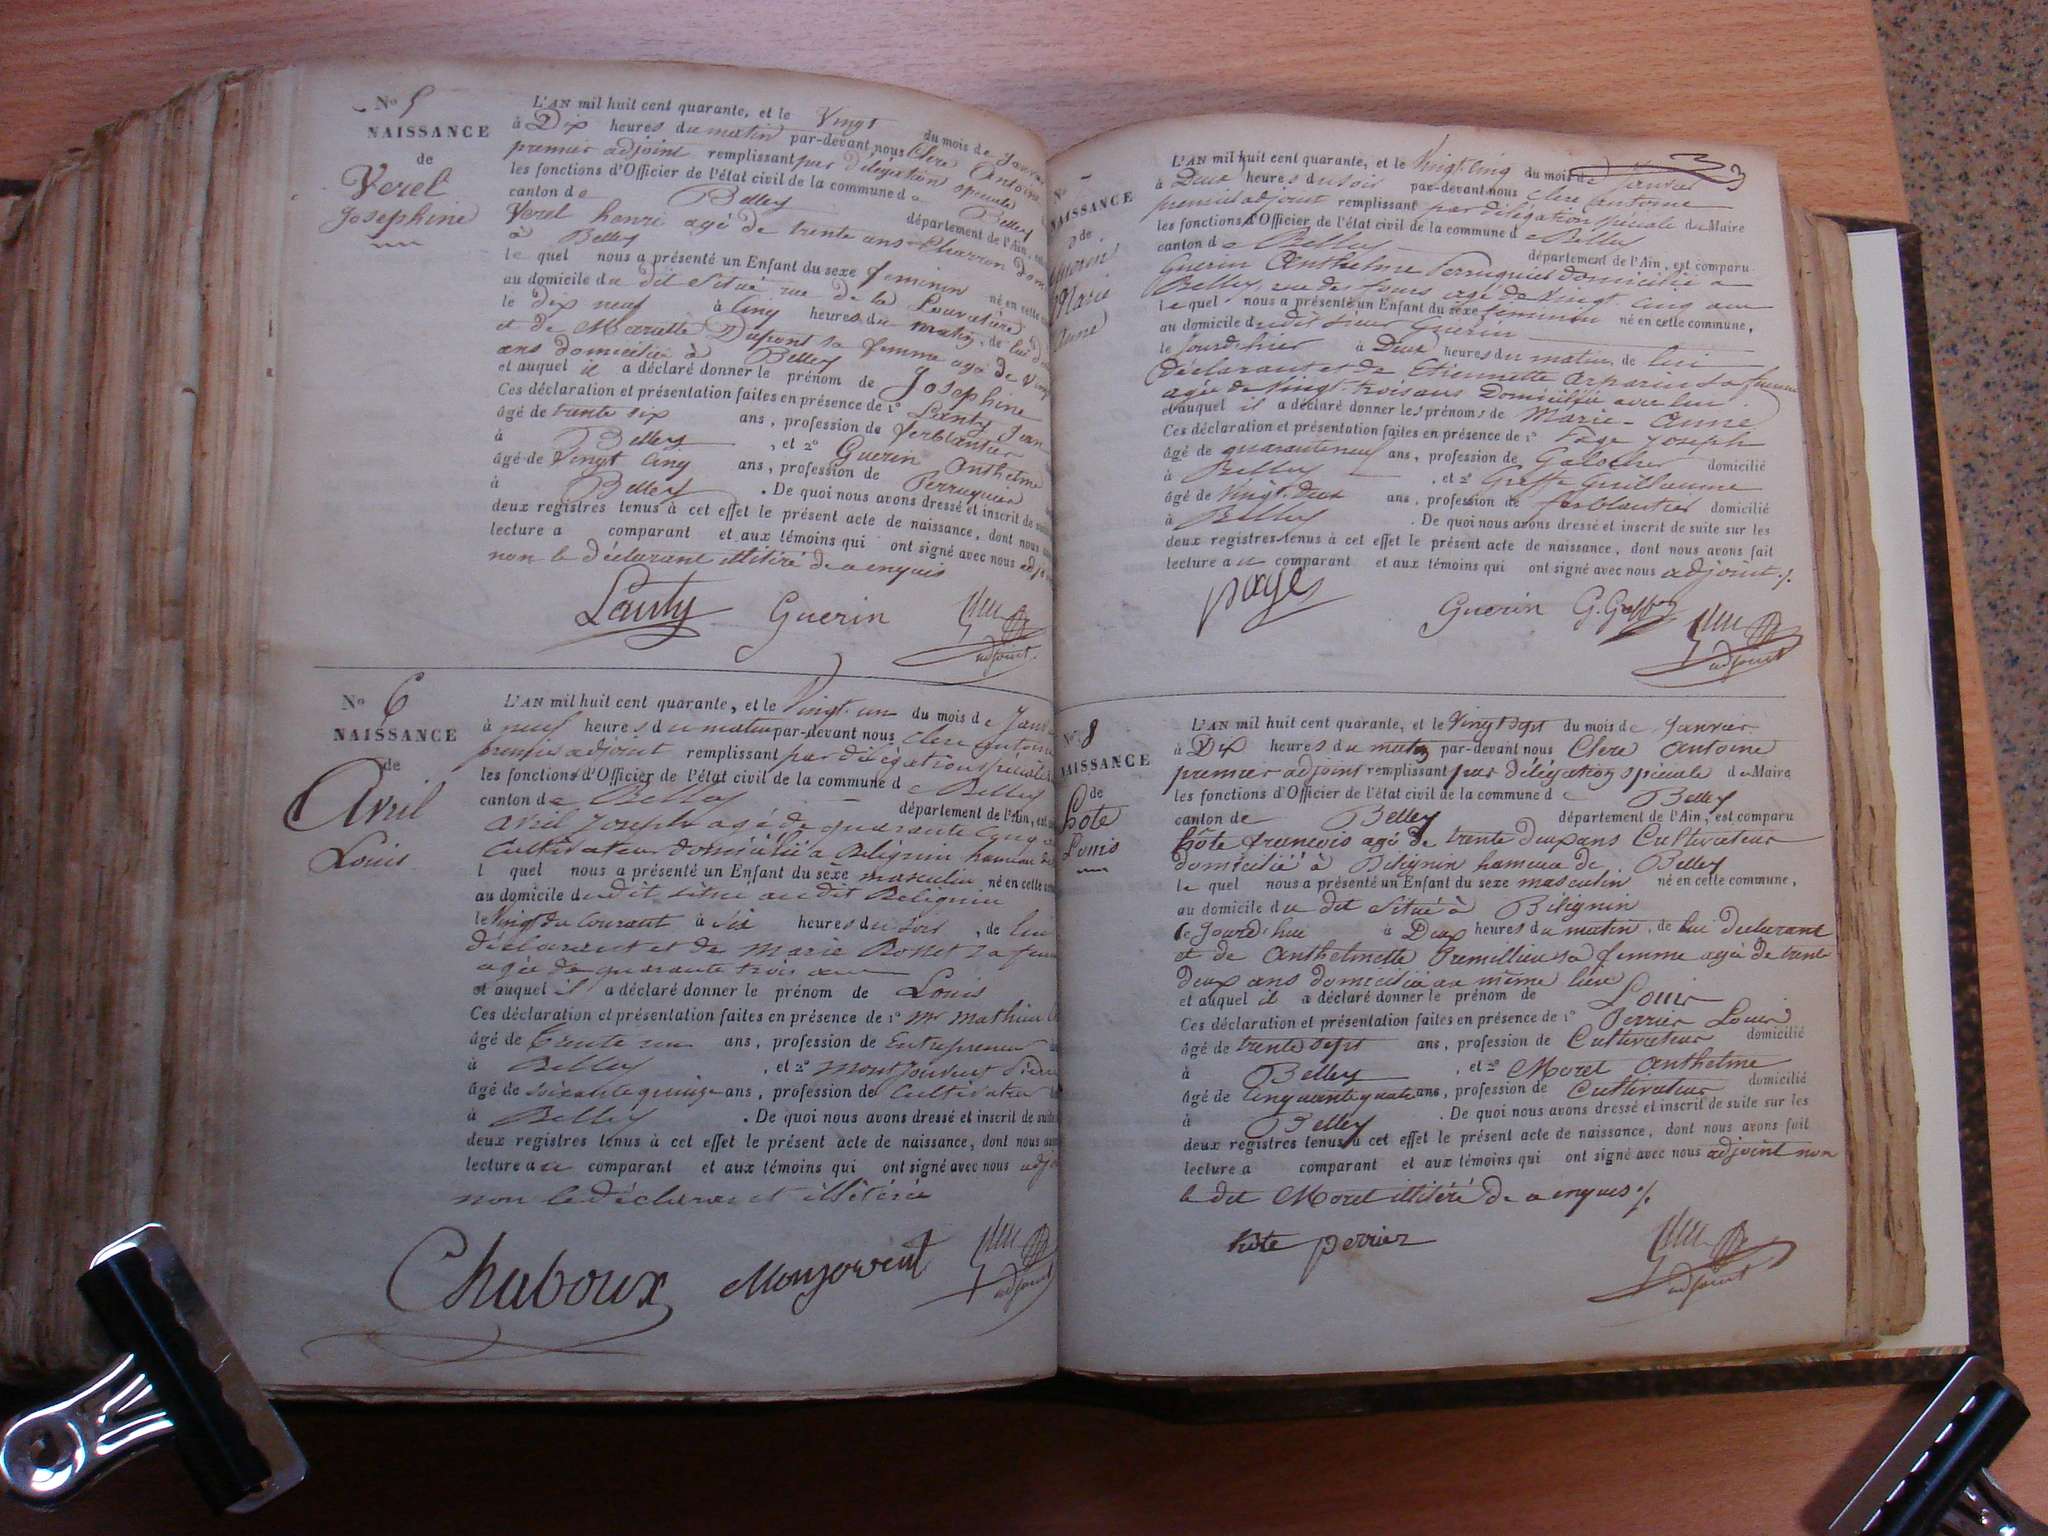 No 5
NAISSANCE
de
Verel
Josephine
L'AN mil huit cent quarante, et le Vingt du mois de
à Dix heures du matin par-devant nous Clerc Antoine
premier adjoint remplissant par délégation spéciale
les fonctions d'Officier de l'état civil de la commune de Belley
canton de Belley département de l'Ain,
Verel henri agé de trente ans Charron
à Belley
le quel nous a présenté un Enfant du sexe feminin né en cette
au domicile du dit Situé rue de la
le dix neuf à Cinq heures du matin, de lui
et de Mariette Dupont sa femme agé de
ans domicilié à Belley
et auquel il a déclaré donner le prénom de Josephine
Ces déclaration et présentation faites en présence de 1° Lanty Jean
âgé de trente six ans, profession de ferblantier
à Belley, et 2° Guerin Anthelme
âgé de Vingt Cinq ans, profession de Perruquier
à Belley. De quoi nous avons dressé et inscrit de suite
deux registres tenus à cet effet le présent acte de naissance, dont nous
lecture a comparant et aux témoins qui ont signé avec nous
non le déclarant illitéré de a enquis
Lanty Guerin
adjoint
No 6
NAISSANCE
de
Avril
Louis
L'AN mil huit cent quarante, et le Vingt-un du mois de
à neuf heures du matin par-devant nous Clerc Antoine
premier adjoint remplissant par délégation spéciale
les fonctions d'Officier de l'état civil de la commune de Belley
canton de Belley département de l'Ain,
Avril Joseph agé de quarante Cinq
Cultivateur domicilié a Belignin hameau de
l quel nous a présenté un Enfant du sexe masculin né en cette
au domicile du dit situé au dit Belignin
le Vingt du Courant à Six heures du Soir, de lui
déclarant et de Marie
agée de quarante trois ans
et auquel il a déclaré donner le prénom de Louis
Ces déclaration et présentation faites en présence de 1° Mr Mathieu
âgé de trente un ans, profession de Entrepreneur
à Belley, et 2°
âgé de soixante quinze ans, profession de Cultivateur
à Belley. De quoi nous avons dressé et inscrit de suite
deux registres tenus à cet effet le présent acte de naissance, dont nous
lecture au comparant et aux témoins qui ont signé avec nous
non le déclarant illétéré
Chaboux Monjouvent
adjoint
3
NAISSANCE
de
Guerin
Marie
Anne
L'AN mil huit cent quarante, et le Vingt-Cinq du mois de Janvier
à Deux heures du soir par-devant nous Clerc Antoine
premier adjoint remplissant par délégation spéciale du Maire
les fonctions d'Officier de l'état civil de la commune de Belley
canton de Belley département de l'Ain, est comparu
Guerin Anthelme Perruquier domicilié a
Belley, rue des fours agé de Vingt Cinq ans
le quel nous a présenté un Enfant du sexe feminin né en cette commune,
au domicile du dit sieur Guerin
le Jourd'hier à Deux heures du matin, de lui
Déclarant et de Etiennette Arparin sa femme
agée de Vingt-trois ans Domiciliée avec lui
et auquel il a déclaré donner les prénoms de Marie-Anne
Ces déclaration et présentation faites en présence de 1° Page Joseph
âgé de quarante neuf ans, profession de Galocher domicilié
à Belley, et 2° Greffe Guillaume
âgé de Vingt-Deux ans, profession de ferblantier domicilié
à Belley. De quoi nous avons dressé et inscrit de suite sur les
deux registres tenus à cet effet le présent acte de naissance, dont nous avons fait
lecture au comparant et aux témoins qui ont signé avec nous adjoint ./.
page Guerin
adjoint
No 8
NAISSANCE
de
hôte
Louis
L'AN mil huit cent quarante, et le Vingt Sept du mois de Janvier
à Dix heures du matin par-devant nous Clerc Antoine
premier adjoint remplissant par délégation spéciale du Maire
les fonctions d'Officier de l'état civil de la commune de Belley
canton de Belley département de l'Ain, est comparu
hôte francois agé de trente deux ans Cultivateur
domicilié à Belignin hameau de Belley
le quel nous a présenté un Enfant du sexe masculin né en cette commune,
au domicile du dit Situé à Belignin
le Jourd'hui à Deux heures du matin, de lui déclarant
et de Anthelmette Premillieu sa femme agé de trente
deux ans domiciliée au même lieu
et auquel il a déclaré donner le prénom de Louis
Ces déclaration et présentation faites en présence de 1° Perrier Louis
âgé de trente sept ans, profession de Cultivateur domicilié
à Belley, et 2° Moret Anthelme
âgé de Cinquante quatre ans, profession de Cultivateur domicilié
à Belley. De quoi nous avons dressé et inscrit de suite sur les
deux registres tenus à cet effet le présent acte de naissance, dont nous avons fait
lecture a comparant et aux témoins qui ont signé avec nous adjoint non
le dit Moret illitéré de a enquis ./.
hôte perrier
adjoint